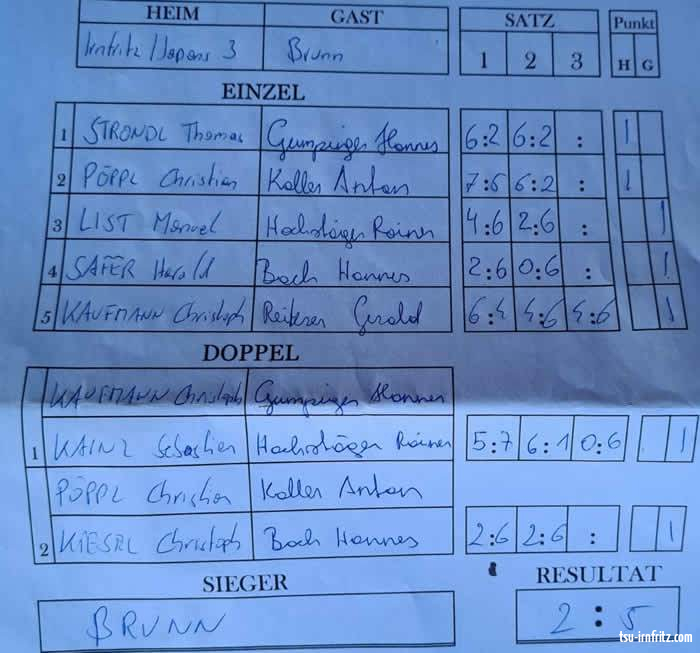 HEIM GAST SATZ Punkt
Irnfritz/Japons 3 Brunn 1 2 3 H G
EINZEL
1 STRONDL Thomas Gumpinger Hannes 6:2 6:2 : 1
2 PÖPPL Christian Koller Anton 7:5 6:2 : 1
3 LIST Manuel Rainer 4:6 2:6 : 1
4 SAFER Harald Bach Hannes 2:6 0:6 : 1
5 KAUFMANN Christoph Reiterer Gerald 6:4 4:6 4:6 1
DOPPEL
KAUFMANN Christoph Gumpinger Hannes
1 KAINZ Sebastian Rainer 5:7 6:1 0:6 1
PÖPPL Christian Koller Anton
2 KIESEL Christoph Bach Hannes 2:6 2:6 : 1
SIEGER RESULTAT
BRUNN 2:5
tsu-irnfritz.com